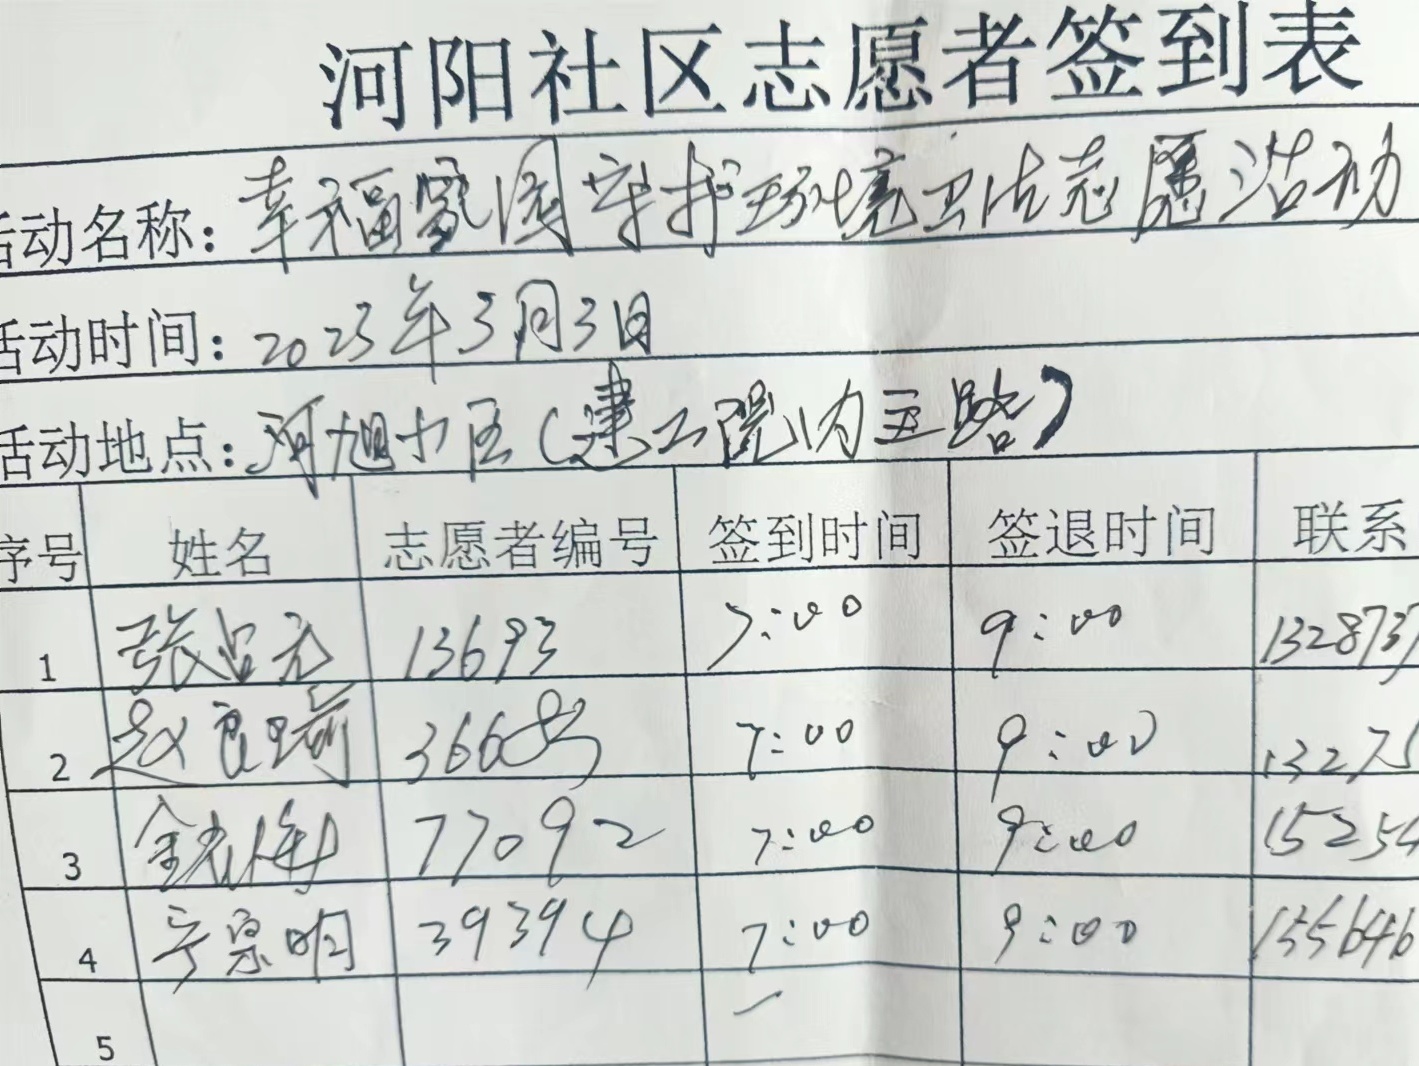 河阳社区志愿者签到表
活动名称：幸福家园守护环境卫生志愿活动
活动时间：2023年3月3日
活动地点：河旭小区（建工院内主路）
序号 姓名 志愿者编号 签到时间 签退时间 联系
1 张占元 13693 7:00 9:00 132873
2 赵良 7:00 9:00 13275
3 金 77092 7:00 9:00 15254
4 宁宗明 39394 7:00 9:00 155646
5